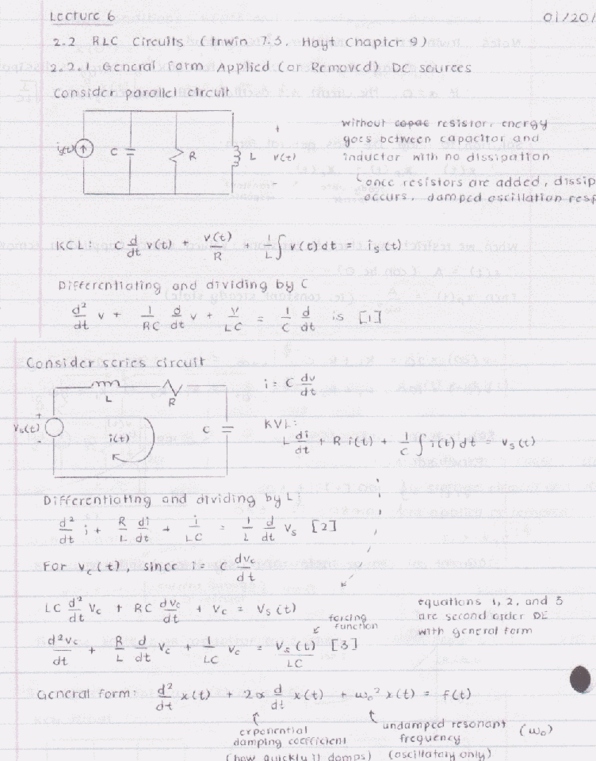 Lecture 6 01/20/
2.2 RLC Circuits (Irwin 7.3, Hayt Chapter 9)
2.2.1 General Form Applied (or Removed) DC sources
Consider parallel circuit
is(t) C R L + v(t) -
without capac resistor, energy
goes between capacitor and
inductor with no dissipation
once resistors are added, dissip
occurs, damped oscillation resp
KCL: C d/dt v(t) + v(t)/R + 1/L ∫ v(t) dt = is(t)
Differentiating and dividing by C
d²/dt v + 1/RC d/dt v + v/LC = 1/C d/dt is [1]
Consider series circuit
L R
i = C dv/dt
vs(t) + - i(t) C
KVL:
L di/dt + R i(t) + 1/C ∫ i(t) dt = vs(t)
Differentiating and dividing by L
d²/dt i + R/L di/dt + i/LC = 1/L d/dt vs [2]
For vc(t), since i = C dvc/dt
LC d²/dt vc + RC dvc/dt + vc = vs(t)
forcing
function
d²vc/dt + R/L d/dt vc + 1/LC vc = vs(t)/LC [3]
equations 1, 2, and 3
are second order DE
with general form
General form: d²/dt x(t) + 2α d/dt x(t) + ω₀² x(t) = f(t)
exponential
damping coefficient
(how quickly it damps)
undamped resonant
frequency (ω₀)
(oscillatory only)